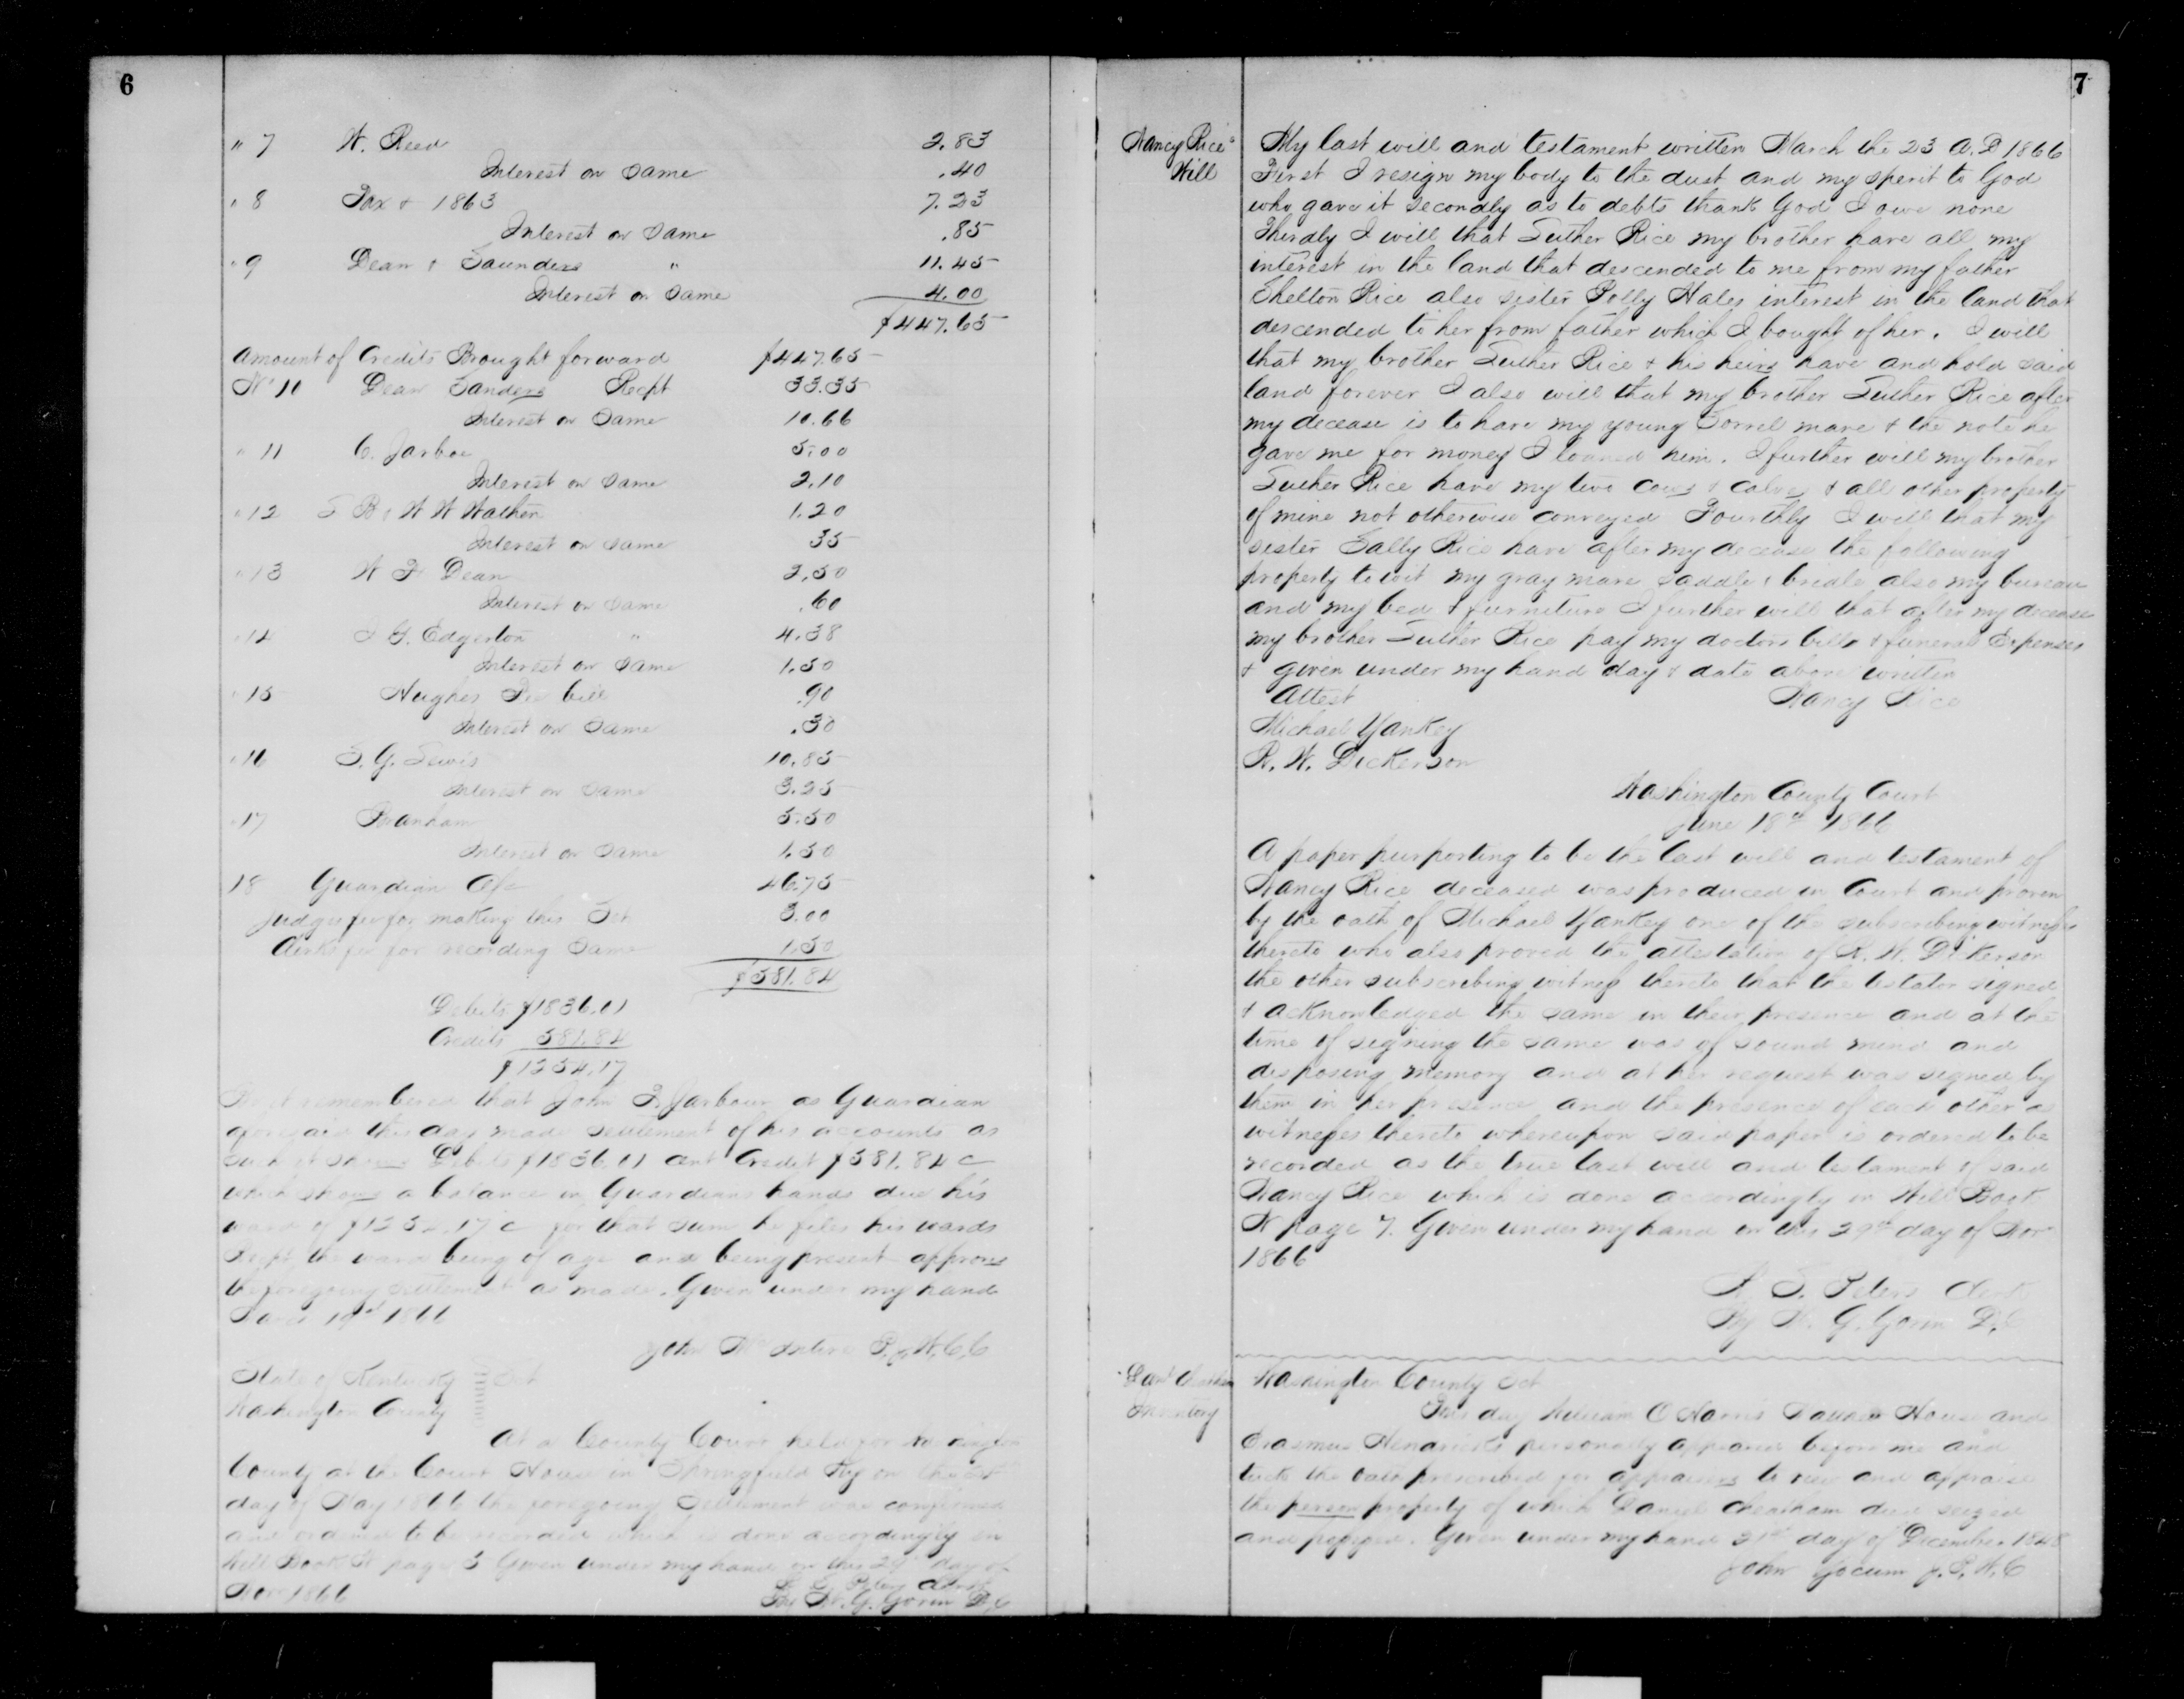 6
" 7 W. Reed 2.83
Interest on Same .40
" 8 Tax + 1863 7.23
Interest on Same .85
" 9 Dean + Saunders " 11.45
Interest on Same 4.00
$447.65
Amount of Credits Brought forward $447.65
No 10 Dean Sanders Recpt 33.35
Interest on Same 10.66
" 11 C. Jarboe 5.00
Interest on Same 2.10
" 12 S B & W W Wathen 1.20
Interest on Same 35
" 13 W F Dean 2.50
Interest on Same .60
" 14 J G. Edgerton " 4.38
Interest on Same 1.50
" 15 Hughes Fee bill .90
Interest on Same .30
" 16 S. G. Lewis 10.85
Interest on Same 3.25
" 17 Branham 5.50
Interest on Same 1.50
18 Guardian 46.75
Judges fee for making this Set 3.00
Clerks fee for recording Same 1.50
$581.84
Debits $1836.01
Credits 581.84
$1254.17
Be it remembered that John Jarbour as Guardian
aforesaid this day made settlement of his accounts as
such it shows Debits $1836.01 Credit $581.84 c
which shows a balance in Guardians hands due his
ward of $1254.17 c for that sum he files his wards
Recpt the ward being of age and being present approves
the foregoing settlement as made. Given under my hand
1866
John McIntire P.J.W.C.C
State of Kentucky Sct
Washington County
At a County Court held for Washington
County at the Court House in Springfield Ky on the
day of May 1866 the foregoing Settlement was confirmed
and ordered to be recorded which is done accordingly in
Will Book N page 5 Given under my hand on this 29th day of
Nov 1866 Clerk
By W. G. Gorin D.C
7
Nancy Rice's
Will
My last will and testament written March the 23 A.D 1866
First I resign my body to the dust and my sperit to God
who gave it secondly as to debts thank God I owe none
Therdly I will that Luther Rice my brother have all my
interest in the land that descended to me from my father
Shelton Rice also sister Polly Hales interest in the land that
descended to her from father which I bought of her. I will
that my brother Luther Rice + his heirs have and hold said
land forever I also will that my brother Luther Rice after
my decease is to have my young Sorrel mare + the note he
gave me for money I loaned him. I further will my brother
Luther Rice have my two cows + calves + all other property
of mine not otherwise conveyed Fourthly I will that my
sister Sally Rice have after my decease the following
property to wit my gray mare saddle + bridle also my bureau
and my bed + furniture I further will that after my decease
my brother Luther Rice pay my doctors bills + funeral Expenses
+ given under my hand day + date above written
Attest Nancy Rice
Michael Yankey
R. W. Dickerson
Washington County Court
June 18th 1866
A paper purporting to be the last will and testament of
Nancy Rice deceased was produced in Court and proven
by the oath of Michael Yankey one of the subscribing witnesses
thereto who also proved the attestation of R. W. Dikerson
the other subscribing witness thereto that the testator signed
+ acknowledged the same in their presence and at the
time of signing the same was of sound mind and
disposing memory and at her request was signed by
them in her presence and the presence of each other as
witnesses thereto whereupon said paper is ordered to be
recorded as the true last will and testament of said
Nancy Rice which is done accordingly in Will Book
N page 7. Given under my hand on this 29th day of Nov
1866
Peters Clerk
By W. G. Gorin D.C
Danl Cheatham
Inventory
Washington County Sct
This day William C Norris House and
Erasmus Hendricks personally appeared before me and
took the oath prescribed for appraisers to view and appraise
the person property of which Daniel Cheatham died seized
and possessed. Given under my hand 21st day of December 1848
John Yocum J.P.W.C